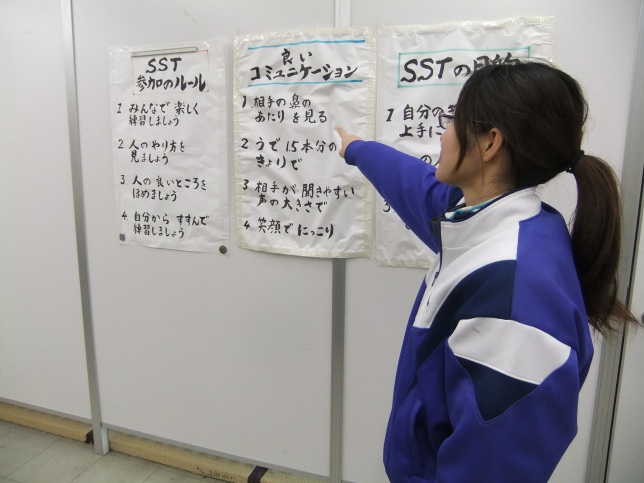 SST
参加のルール
1 みんなで 楽しく
練習しましょう
2. 人の やり方を
見ましょう
3. 人の 良いところを
ほめましょう
4. 自分から すすんで
練習しましょう
良い
コミュニケーション
1 相手の 鼻の
あたり を 見る
2 うで 1.5本分の
きょりで
3 相手が 聞きやすい
声の 大きさで
4. 笑顔で にっこり
SSTの目的
1 自分の
上手に
の